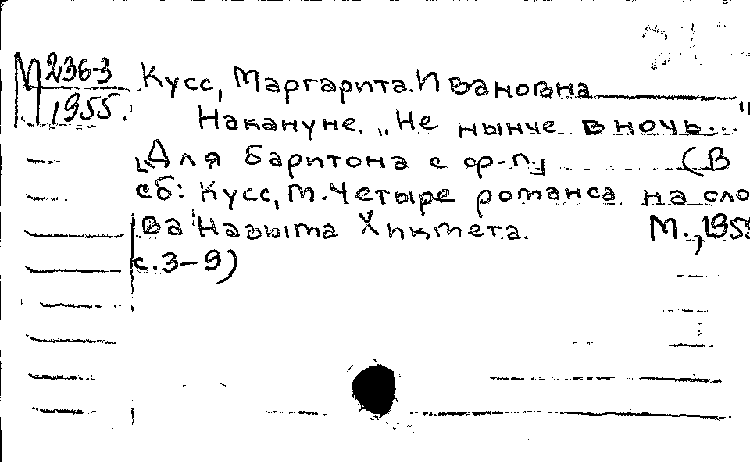 М 236-3
1955.
Кусс, Маргарита Ивановна
Накануне. „Не нынче в ночь..."
[Для баритона с ф-п] (В
сб: Кусс, М. Четыре романса на сло
ва Назыма Хикмета. М., 195
с. 3-9)